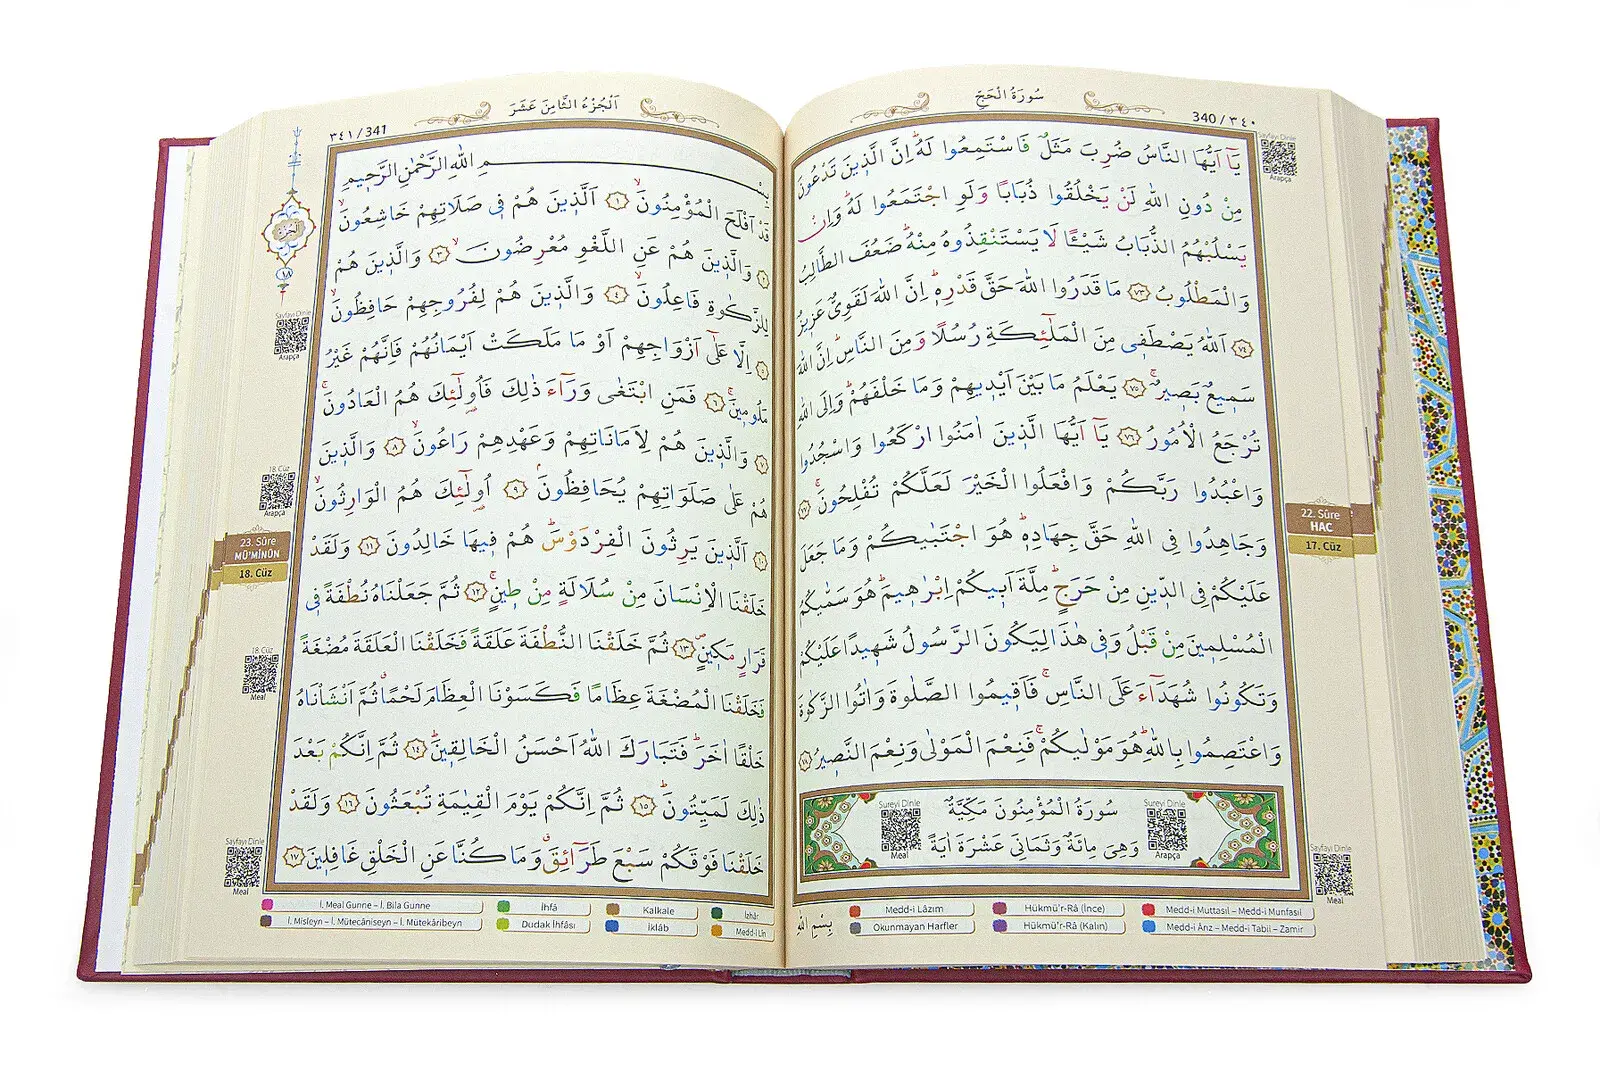 سُورَةُ الْحَجِّ
340 / ٣٤٠
Sayfayı Dinle
Arapça
يَٓا اَيُّهَا النَّاسُ ضُرِبَ مَثَلٌ فَاسْتَمِعُوا لَهُۜ اِنَّ الَّذ۪ينَ تَدْعُونَ
مِنْ دُونِ اللّٰهِ لَنْ يَخْلُقُوا ذُبَابًا وَلَوِ اجْتَمَعُوا لَهُۜ وَاِنْ
يَسْلُبْهُمُ الذُّبَابُ شَيْـًٔا لَا يَسْتَنْقِذُوهُ مِنْهُۜ ضَعُفَ الطَّالِبُ
وَالْمَطْلُوبُ ﴿٧٣﴾ مَا قَدَرُوا اللّٰهَ حَقَّ قَدْرِه۪ۜ اِنَّ اللّٰهَ لَقَوِيٌّ عَز۪يزٌ
﴿٧٤﴾ اَللّٰهُ يَصْطَف۪ي مِنَ الْمَلٰٓئِكَةِ رُسُلًا وَمِنَ النَّاسِۜ اِنَّ اللّٰهَ
سَم۪يعٌ بَص۪يرٌۚ ﴿٧٥﴾ يَعْلَمُ مَا بَيْنَ اَيْد۪يهِمْ وَمَا خَلْفَهُمْۜ وَاِلَى اللّٰهِ
تُرْجَعُ الْاُمُورُ ﴿٧٦﴾ يَٓا اَيُّهَا الَّذ۪ينَ اٰمَنُوا ارْكَعُوا وَاسْجُدُوا
وَاعْبُدُوا رَبَّكُمْ وَافْعَلُوا الْخَيْرَ لَعَلَّكُمْ تُفْلِحُونَۚ ﴿٧٧﴾
وَجَاهِدُوا فِي اللّٰهِ حَقَّ جِهَادِه۪ۜ هُوَ اجْتَبٰيكُمْ وَمَا جَعَلَ
عَلَيْكُمْ فِي الدّ۪ينِ مِنْ حَرَجٍۜ مِلَّةَ اَب۪يكُمْ اِبْرٰه۪يمَۜ هُوَ سَمّٰيكُمُ
الْمُسْلِم۪ينَ مِنْ قَبْلُ وَف۪ي هٰذَا لِيَكُونَ الرَّسُولُ شَه۪يدًا عَلَيْكُمْ
وَتَكُونُوا شُهَدَٓاءَ عَلَى النَّاسِۚ فَاَق۪يمُوا الصَّلٰوةَ وَاٰتُوا الزَّكٰوةَ
وَاعْتَصِمُوا بِاللّٰهِۜ هُوَ مَوْلٰيكُمْۚ فَنِعْمَ الْمَوْلٰى وَنِعْمَ النَّص۪يرُ ﴿٧٨﴾
22. Sûre
HAC
17. Cüz
سُورَةُ الْمُؤْمِنُونَ مَكِّيَّةٌ
وَهِيَ مِائَةٌ وَثَمَانِيَ عَشْرَةَ اٰيَةً
Sureyi Dinle
Arapça
Sureyi Dinle
Meal
Sayfayı Dinle
Meal
Medd-i Lâzım
Hükmü'r-Râ (İnce)
Medd-i Muttasıl – Medd-i Munfasıl
بِسْمِ اللّٰهِ
Okunmayan Harfler
Hükmü'r-Râ (Kalın)
Medd-i Ârız – Medd-i Tabii – Zamir
اَلْجُزْءُ الثَّامِنَ عَشَرَ
٣٤١ / 341
بِسْمِ اللّٰهِ الرَّحْمٰنِ الرَّح۪يمِ
قَدْ اَفْلَحَ الْمُؤْمِنُونَۙ ﴿١﴾ اَلَّذ۪ينَ هُمْ ف۪ي صَلَاتِهِمْ خَاشِعُونَۙ
﴿٢﴾ وَالَّذ۪ينَ هُمْ عَنِ اللَّغْوِ مُعْرِضُونَۙ ﴿٣﴾ وَالَّذ۪ينَ هُمْ
لِلزَّكٰوةِ فَاعِلُونَۙ ﴿٤﴾ وَالَّذ۪ينَ هُمْ لِفُرُوجِهِمْ حَافِظُونَۙ
﴿٥﴾ اِلَّا عَلٰٓى اَزْوَاجِهِمْ اَوْ مَا مَلَكَتْ اَيْمَانُهُمْ فَاِنَّهُمْ غَيْرُ
مَلُوم۪ينَۚ ﴿٦﴾ فَمَنِ ابْتَغٰى وَرَٓاءَ ذٰلِكَ فَاُو۬لٰٓئِكَ هُمُ الْعَادُونَۚ
﴿٧﴾ وَالَّذ۪ينَ هُمْ لِاَمَانَاتِهِمْ وَعَهْدِهِمْ رَاعُونَۙ ﴿٨﴾ وَالَّذ۪ينَ
هُمْ عَلٰى صَلَوَاتِهِمْ يُحَافِظُونَۢ ﴿٩﴾ اُو۬لٰٓئِكَ هُمُ الْوَارِثُونَۙ
﴿١٠﴾ اَلَّذ۪ينَ يَرِثُونَ الْفِرْدَوْسَۜ هُمْ ف۪يهَا خَالِدُونَ ﴿١١﴾ وَلَقَدْ
خَلَقْنَا الْاِنْسَانَ مِنْ سُلَالَةٍ مِنْ ط۪ينٍۚ ﴿١٢﴾ ثُمَّ جَعَلْنَاهُ نُطْفَةً ف۪ي
قَرَارٍ مَك۪ينٍۖ ﴿١٣﴾ ثُمَّ خَلَقْنَا النُّطْفَةَ عَلَقَةً فَخَلَقْنَا الْعَلَقَةَ مُضْغَةً
فَخَلَقْنَا الْمُضْغَةَ عِظَامًا فَكَسَوْنَا الْعِظَامَ لَحْمًاۗ ثُمَّ اَنْشَأْنَاهُ
خَلْقًا اٰخَرَۜ فَتَبَارَكَ اللّٰهُ اَحْسَنُ الْخَالِق۪ينَۜ ﴿١٤﴾ ثُمَّ اِنَّكُمْ بَعْدَ
ذٰلِكَ لَمَيِّتُونَۜ ﴿١٥﴾ ثُمَّ اِنَّكُمْ يَوْمَ الْقِيٰمَةِ تُبْعَثُونَ ﴿١٦﴾ وَلَقَدْ
خَلَقْنَا فَوْقَكُمْ سَبْعَ طَرَٓائِقَۗ وَمَا كُنَّا عَنِ الْخَلْقِ غَافِل۪ينَ ﴿١٧﴾
الجزء
١٨
Sayfayı Dinle
Arapça
18. Cüz
Arapça
23. Sûre
MÜ'MİNÛN
18. Cüz
18. Cüz
Meal
Sayfayı Dinle
Meal
İ. Meal Gunne – İ. Bila Gunne
İhfâ
Kalkale
İzhâr
İ. Misleyn – İ. Mütecâniseyn – İ. Mütekâribeyn
Dudak İhfâsı
İklâb
Medd-i Lîn